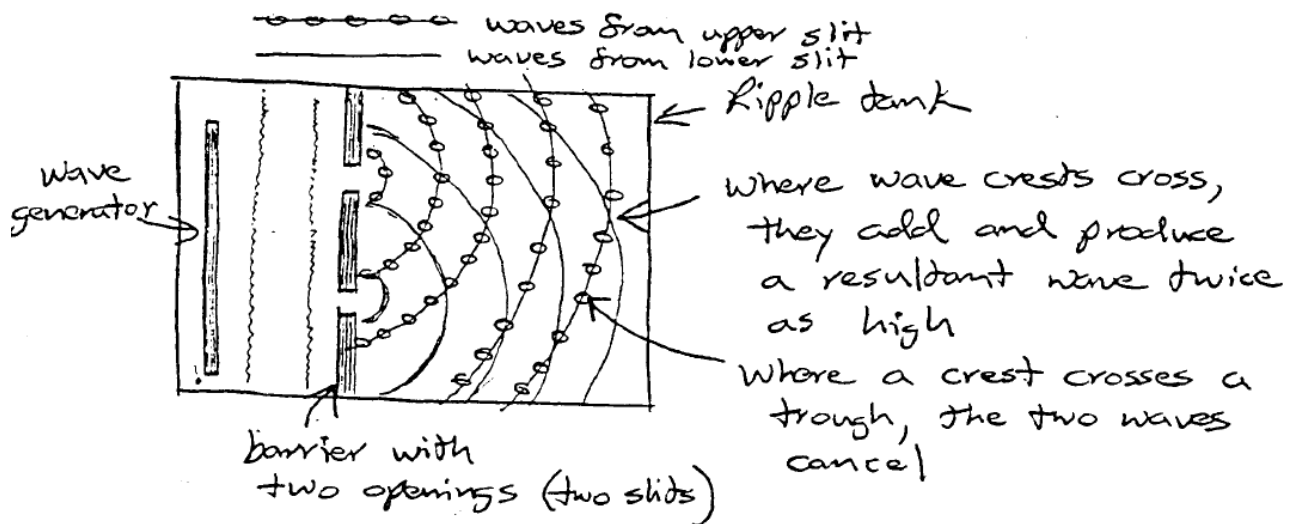 waves from upper slit
waves from lower slit
Ripple tank
wave
generator
where wave crests cross,
they add and produce
a resultant wave twice
as high
where a crest crosses a
trough, the two waves
cancel
barrier with
two openings (two slits)